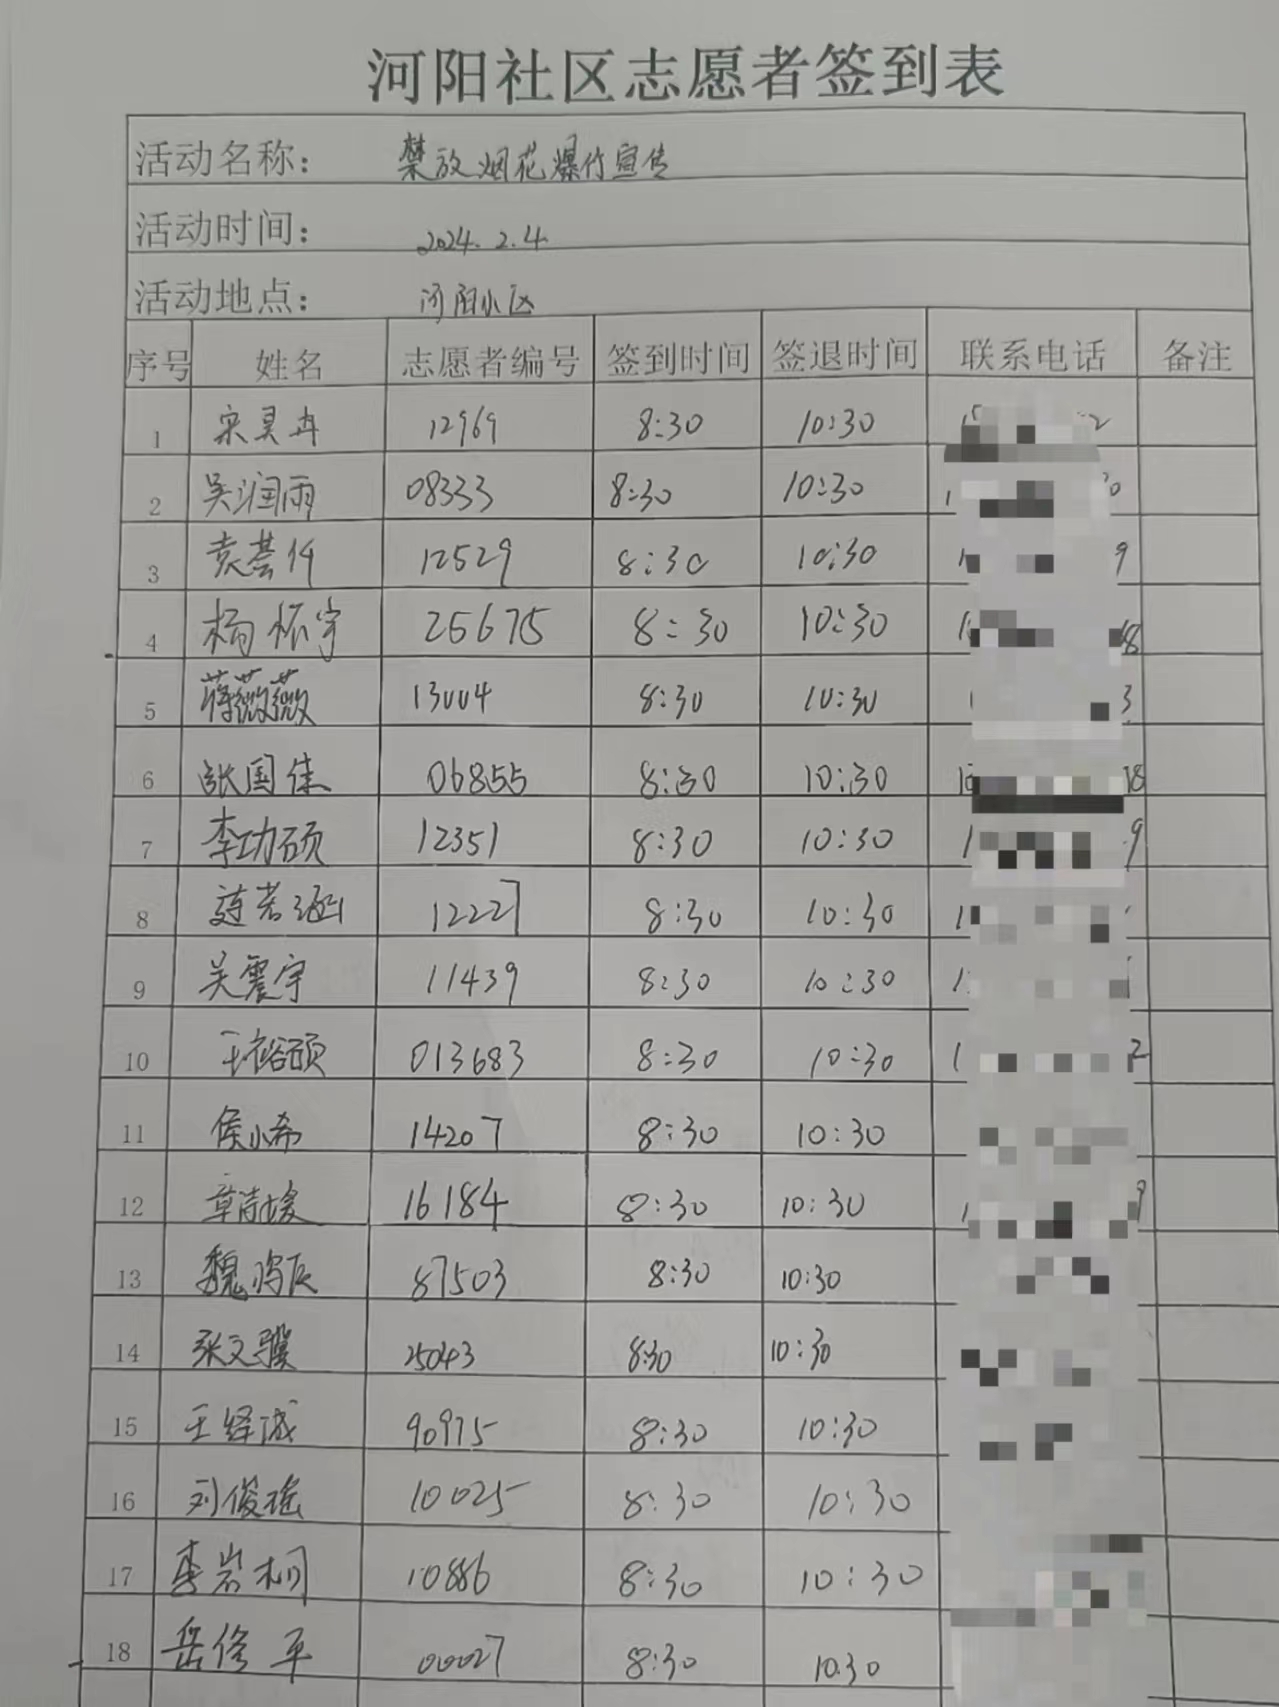 河阳社区志愿者签到表
活动名称： 禁放烟花爆竹宣传
活动时间： 2024.2.4
活动地点： 河阳小区
序号 姓名 志愿者编号 签到时间 签退时间 联系电话 备注
1 宋昊冉 12969 8:30 10:30
2 吴润雨 08333 8:30 10:30
3 袁荟仟 12529 8:30 10:30
4 杨怀宇 25675 8:30 10:30
5 蒋薇薇 13004 8:30 10:30
6 张国佳 06855 8:30 10:30
7 李功硕 12351 8:30 10:30
8 赵若涵 12227 8:30 10:30
9 吴震宇 11439 8:30 10:30
10 王裕硕 013683 8:30 10:30
11 侯小希 14207 8:30 10:30
12 章诗媛 16184 8:30 10:30
13 魏鸿辰 87503 8:30 10:30
14 张文骥 25043 8:30 10:30
15 王绎诚 90975 8:30 10:30
16 刘俊瑶 10025 8:30 10:30
17 李岩桐 10886 8:30 10:30
18 岳修平 00027 8:30 10:30